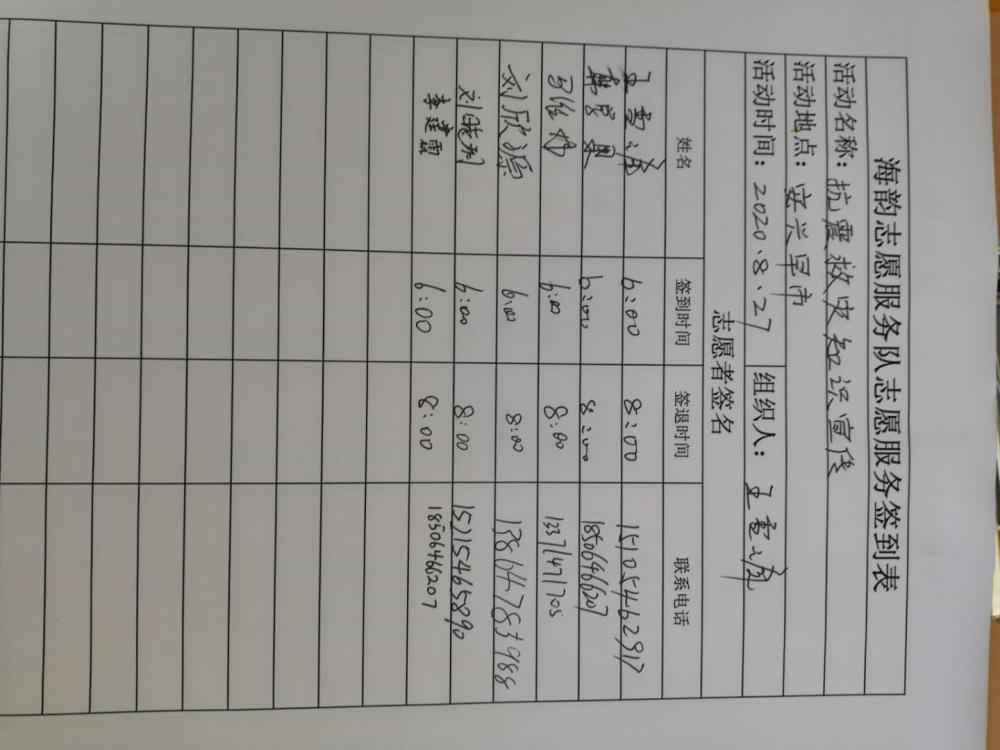 海韵志愿服务队志愿服务签到表
活动名称：抗震救灾知识宣传
活动地点：安兴早市
活动时间：2020.8.27 组织人：
志愿者签名
姓名 签到时间 签退时间 联系电话
6:00 8:00 15105462917
6:00 8:00 18506466207
6:00 8:00 13371471705
刘欣源 6:00 8:00 13864783988
刘晓彤 6:00 8:00 15215465890
李建霞 6:00 8:00 18506466207